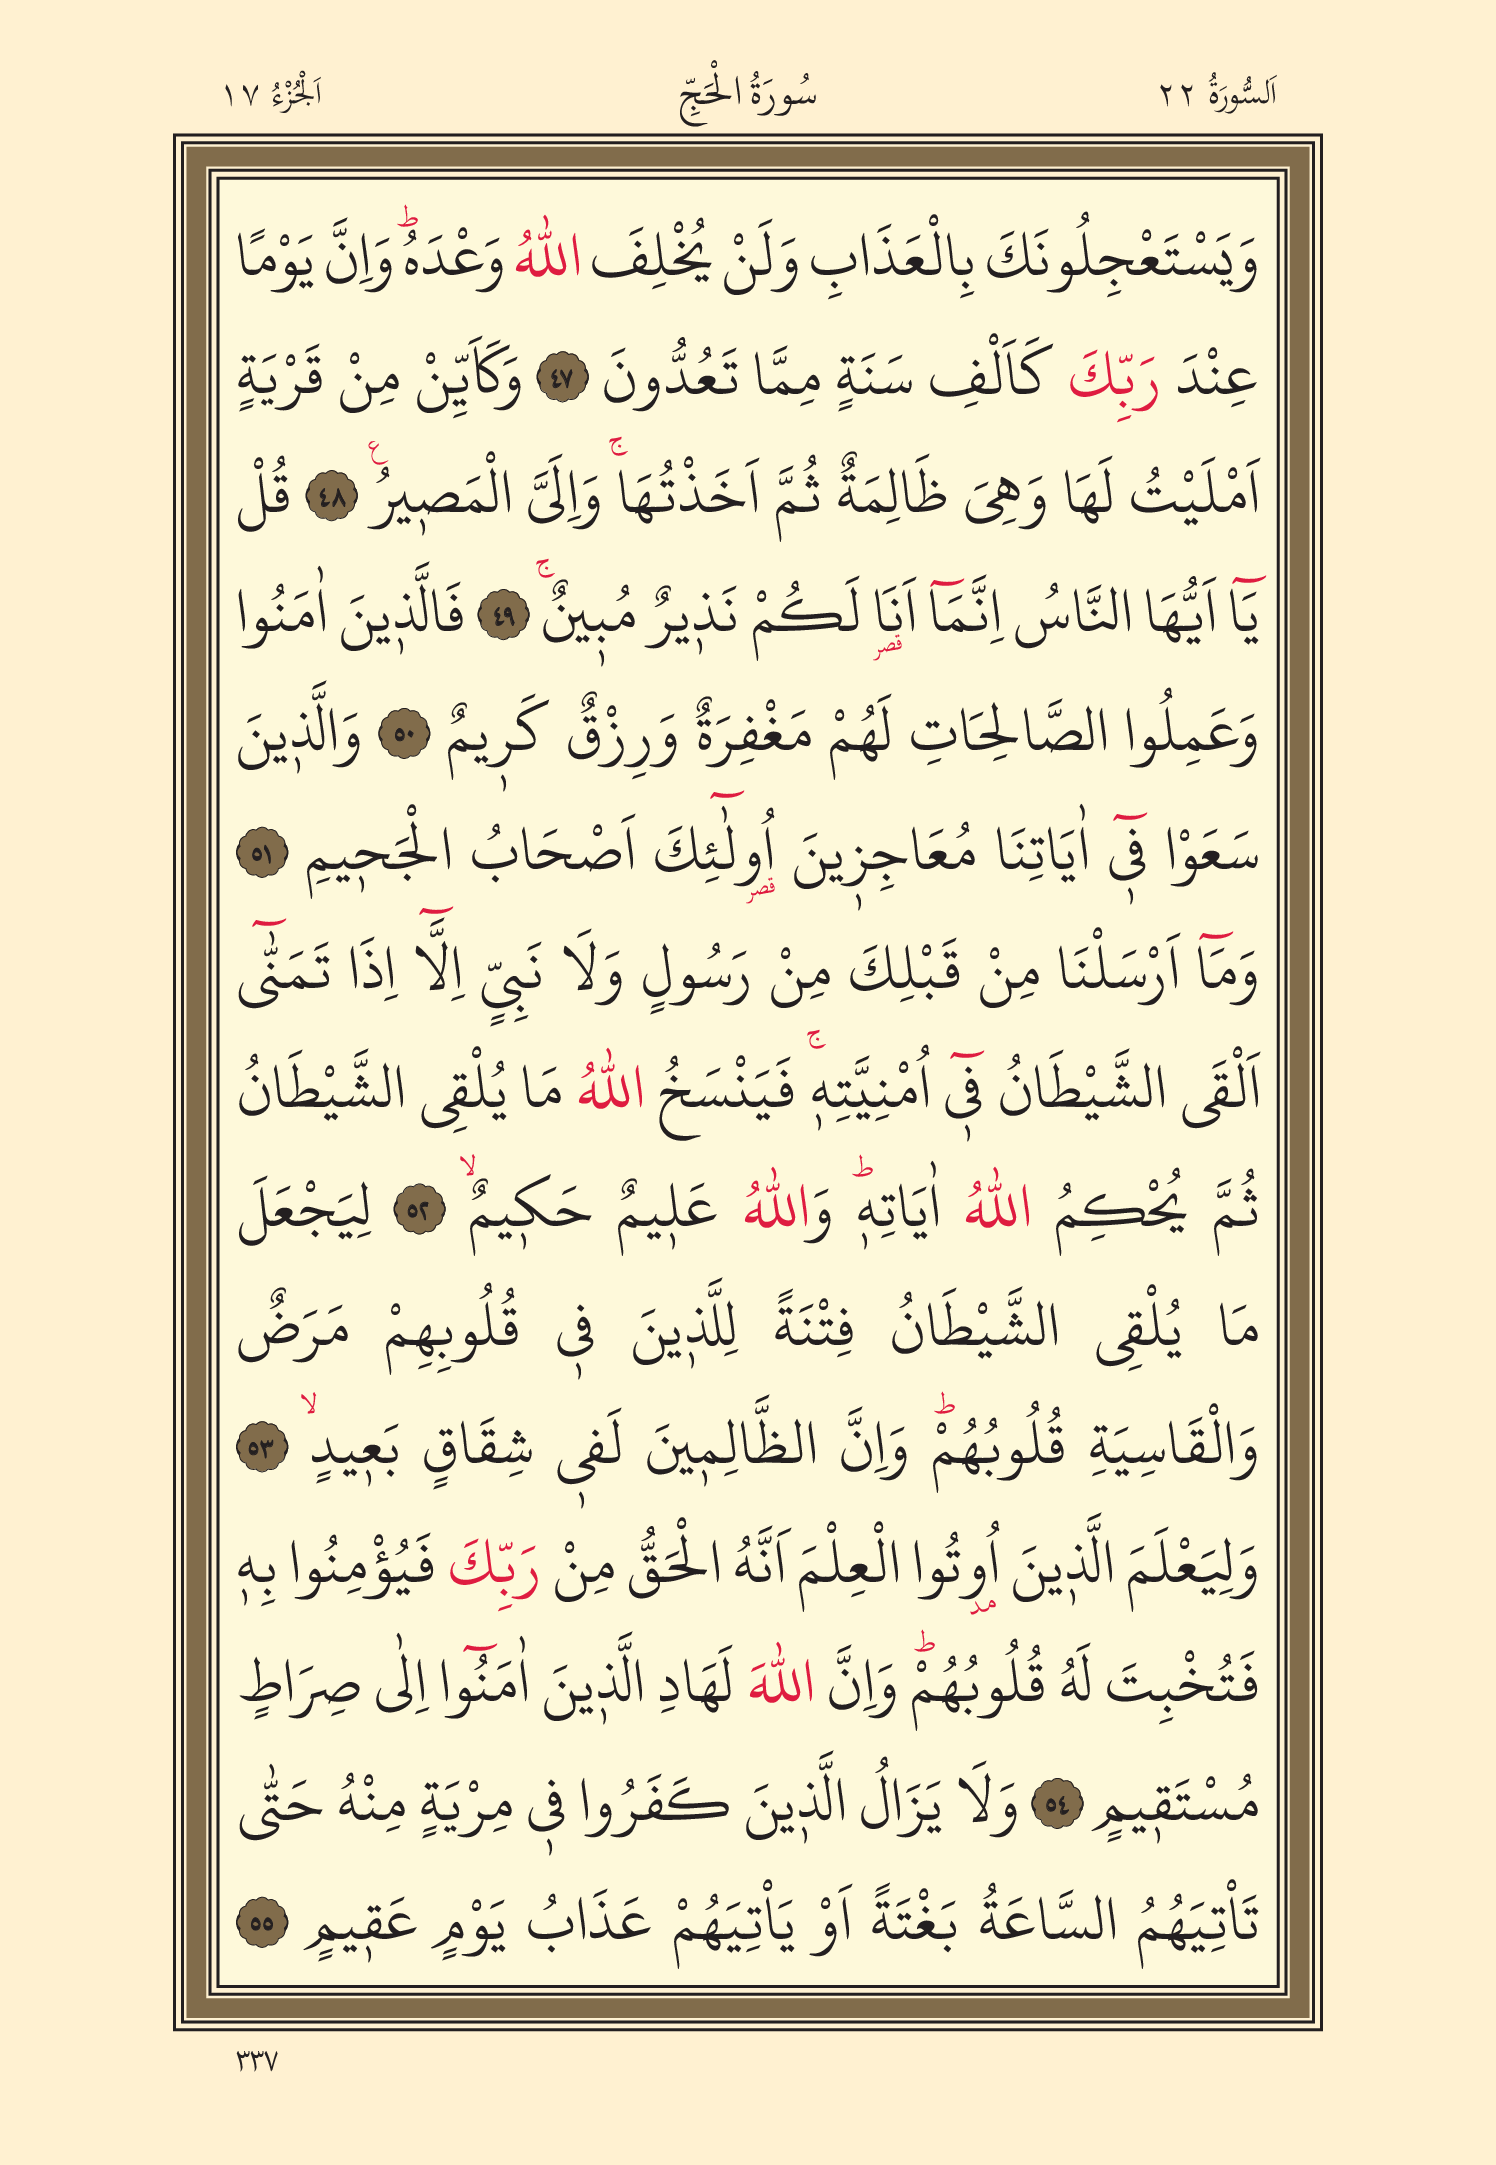 اَلسُّورَةُ ٢٢ سُورَةُ الْحَجِّ اَلْجُزْءُ ١٧
وَيَسْتَعْجِلُونَكَ بِالْعَذَابِ وَلَنْ يُخْلِفَ اللّٰهُ وَعْدَهُۜ وَاِنَّ يَوْمًا
عِنْدَ رَبِّكَ كَاَلْفِ سَنَةٍ مِمَّا تَعُدُّونَ ٤٧ وَكَاَيِّنْ مِنْ قَرْيَةٍ
اَمْلَيْتُ لَهَا وَهِىَ ظَالِمَةٌ ثُمَّ اَخَذْتُهَاۚ وَاِلَىَّ الْمَصٖيرُࣖ ٤٨ قُلْ
يَٓا اَيُّهَا النَّاسُ اِنَّمَٓا اَنَا۬ لَكُمْ نَذٖيرٌ مُبٖينٌۚ ٤٩ فَالَّذٖينَ اٰمَنُوا
وَعَمِلُوا الصَّالِحَاتِ لَهُمْ مَغْفِرَةٌ وَرِزْقٌ كَرٖيمٌ ٥٠ وَالَّذٖينَ
سَعَوْا فٖٓى اٰيَاتِنَا مُعَاجِزٖينَ اُو۬لٰٓئِكَ اَصْحَابُ الْجَحٖيمِ ٥١
وَمَٓا اَرْسَلْنَا مِنْ قَبْلِكَ مِنْ رَسُولٍ وَلَا نَبِىٍّ اِلَّٓا اِذَا تَمَنّٰٓى
اَلْقَى الشَّيْطَانُ فٖٓى اُمْنِيَّتِهٖۚ فَيَنْسَخُ اللّٰهُ مَا يُلْقِى الشَّيْطَانُ
ثُمَّ يُحْكِمُ اللّٰهُ اٰيَاتِهٖۜ وَاللّٰهُ عَلٖيمٌ حَكٖيمٌۙ ٥٢ لِيَجْعَلَ
مَا يُلْقِى الشَّيْطَانُ فِتْنَةً لِلَّذٖينَ فٖى قُلُوبِهِمْ مَرَضٌ
وَالْقَاسِيَةِ قُلُوبُهُمْۜ وَاِنَّ الظَّالِمٖينَ لَفٖى شِقَاقٍ بَعٖيدٍۙ ٥٣
وَلِيَعْلَمَ الَّذٖينَ اُو۫تُوا الْعِلْمَ اَنَّهُ الْحَقُّ مِنْ رَبِّكَ فَيُؤْمِنُوا بِهٖ
فَتُخْبِتَ لَهُ قُلُوبُهُمْۜ وَاِنَّ اللّٰهَ لَهَادِ الَّذٖينَ اٰمَنُٓوا اِلٰى صِرَاطٍ
مُسْتَقٖيمٍ ٥٤ وَلَا يَزَالُ الَّذٖينَ كَفَرُوا فٖى مِرْيَةٍ مِنْهُ حَتّٰى
تَاْتِيَهُمُ السَّاعَةُ بَغْتَةً اَوْ يَاْتِيَهُمْ عَذَابُ يَوْمٍ عَقٖيمٍ ٥٥
٣٣٧